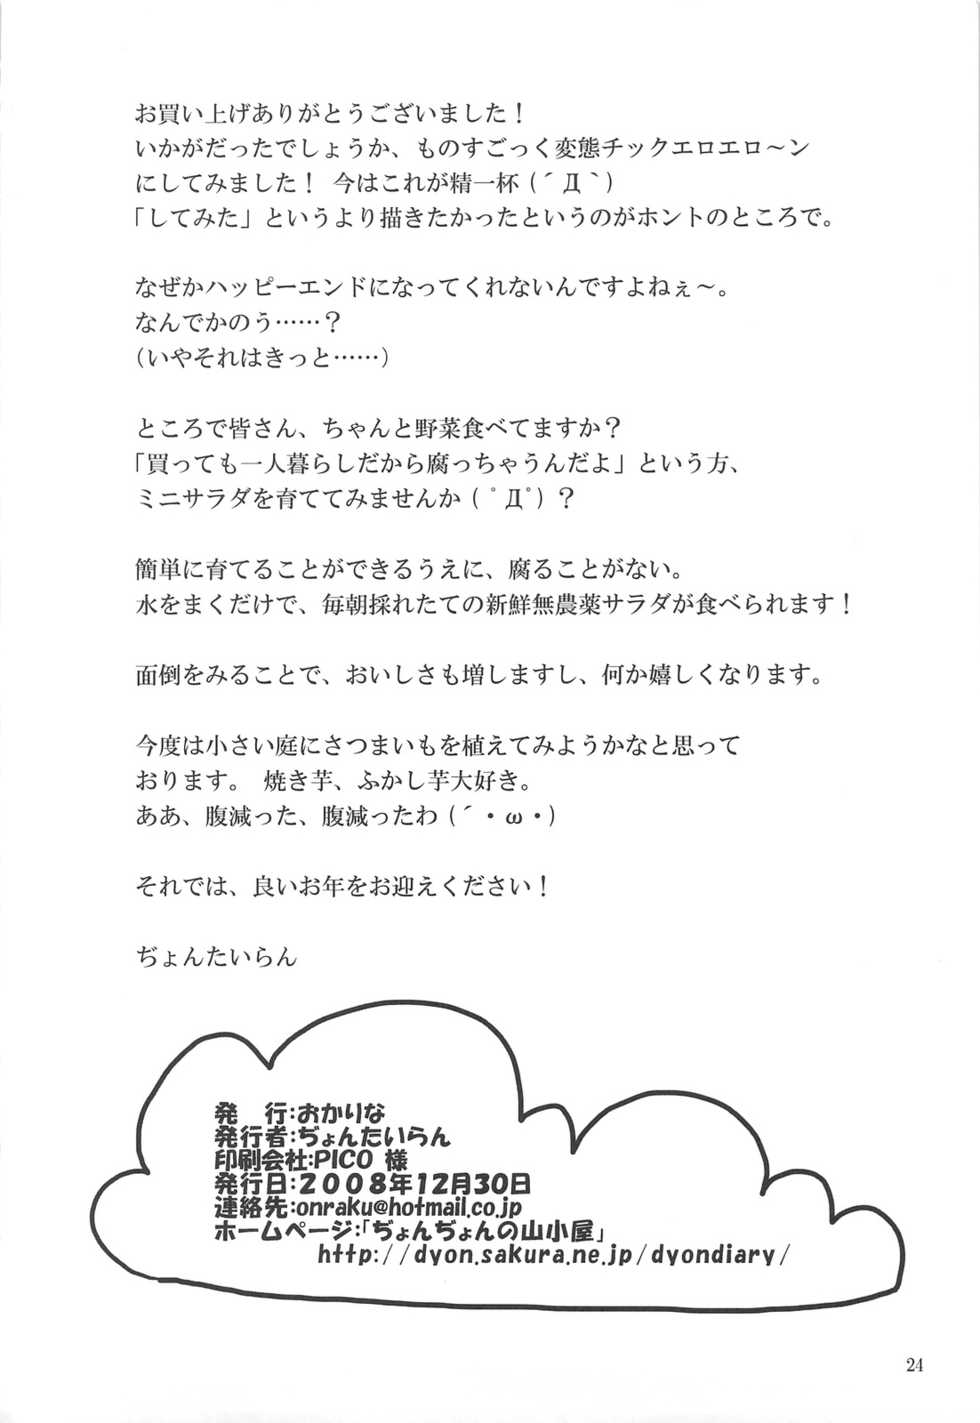 お買い上げありがとうございました！
いかがだったでしょうか、ものすごっく変態チックエロエロ～ン
にしてみました！ 今はこれが精一杯（´Д｀）
「してみた」というより描きたかったというのがホントのところで。
なぜかハッピーエンドになってくれないんですよねぇ～。
なんでかのう……？
（いやそれはきっと……）
ところで皆さん、ちゃんと野菜食べてますか？
「買っても一人暮らしだから腐っちゃうんだよ」という方、
ミニサラダを育ててみませんか（ ﾟДﾟ）？
簡単に育てることができるうえに、腐ることがない。
水をまくだけで、毎朝採れたての新鮮無農薬サラダが食べられます！
面倒をみることで、おいしさも増しますし、何か嬉しくなります。
今度は小さい庭にさつまいもを植えてみようかなと思って
おります。 焼き芋、ふかし芋大好き。
ああ、腹減った、腹減ったわ（´・ω・）
それでは、良いお年をお迎えください！
ぢょんたいらん
発　行：おかりな
発行者：ぢょんたいらん
印刷会社：PICO 様
発行日：２００８年１２月３０日
連絡先：onraku@hotmail.co.jp
ホームページ：「ぢょんぢょんの山小屋」
http://dyon.sakura.ne.jp/dyondiary/
24